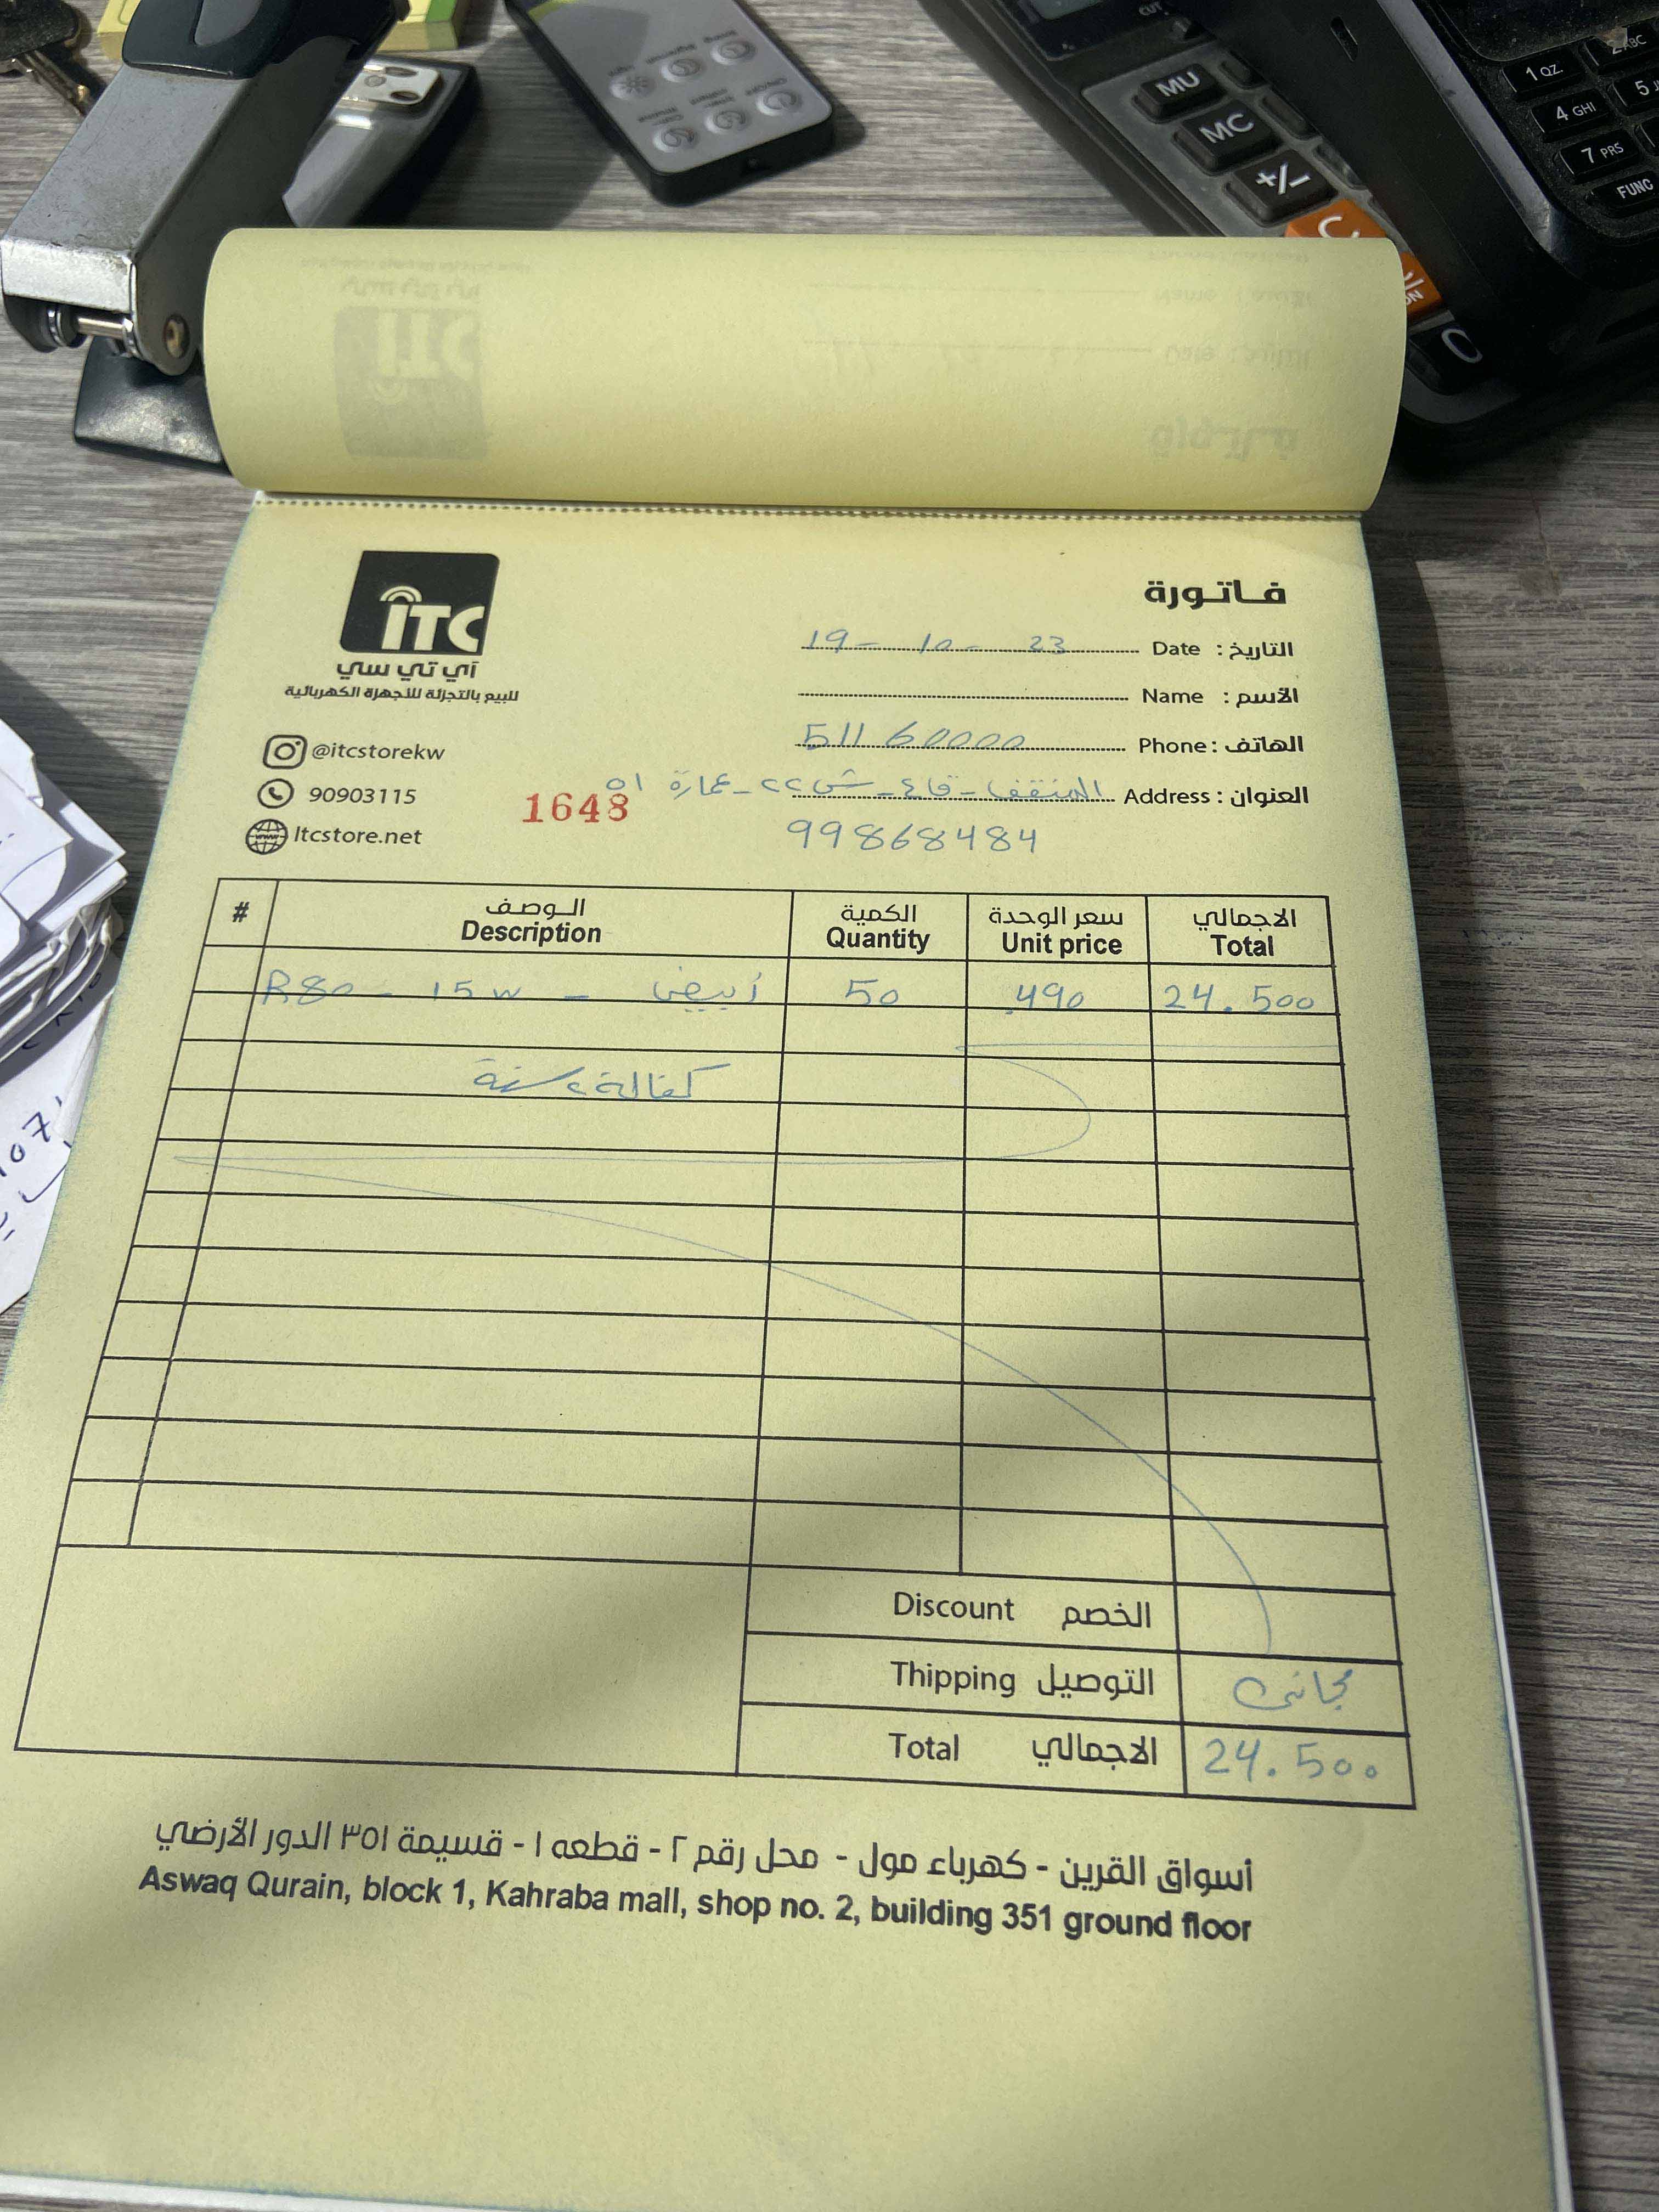 MU
MC
+/-
1 QZ.
2 ABC
4 GHI
7 PRS
FUNC
iTC
آي تي سي
للبيع بالتجزئة للأجهزة الكهربائية
@itcstorekw
90903115
Itcstore.net
1648
فـاتـورة
التاريخ : Date 19 - 10 - 23
الأسم : Name
الهاتف : Phone 511 60000
العنوان : Address المنقف - ق ٤ - ش ٢٢ - عمارة ٥١
99868484
# الـوصـف الكمية سعر الوحدة الاجمالي
Description Quantity Unit price Total
R80 - 15w - أبيض 50 .490 24.500
كفالة ٢ سنة
Discount الخصم
Thipping التوصيل مجاني
Total الاجمالي 24.500
أسواق القرين - كهرباء مول - محل رقم ٢ - قطعه ١ - قسيمة ٣٥١ الدور الأرضي
Aswaq Qurain, block 1, Kahraba mall, shop no. 2, building 351 ground floor